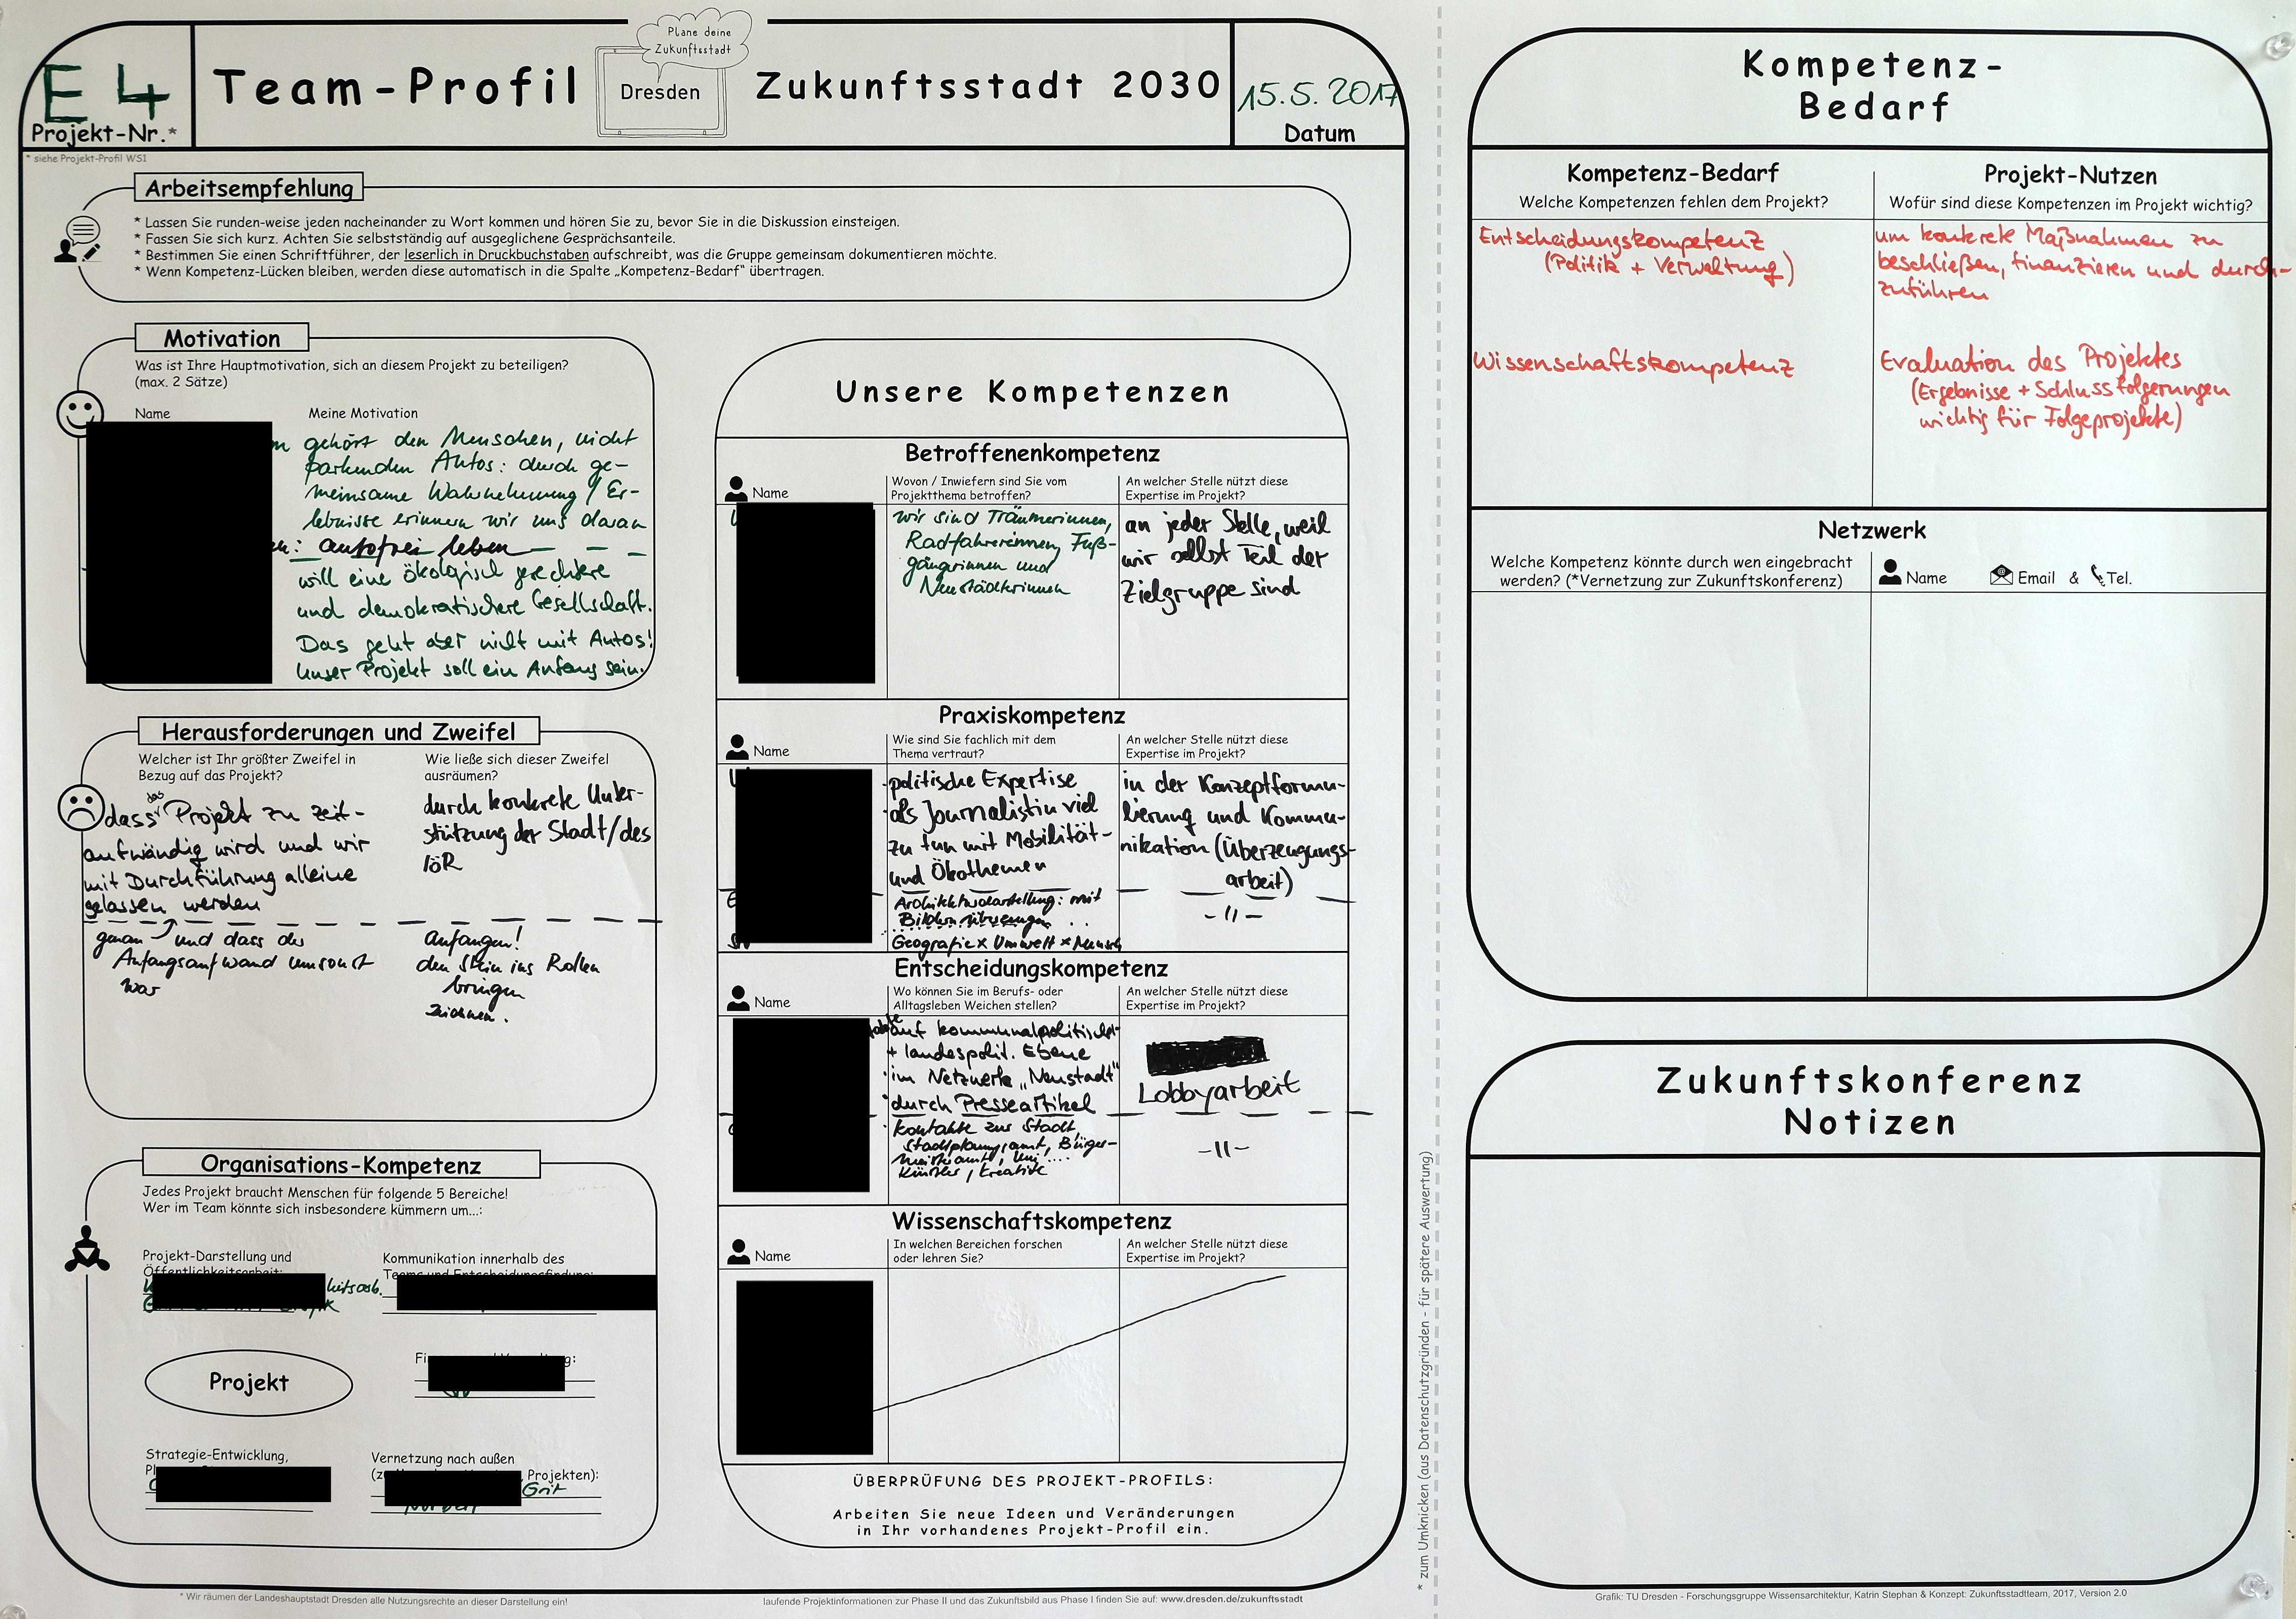 E 4
Projekt-Nr.*
Team-Profil
Plane deine
Zukunftsstadt
Dresden
Zukunftsstadt 2030
15.5.2017
Datum
* siehe Projekt-Profil WS1
Arbeitsempfehlung
* Lassen Sie runden-weise jeden nacheinander zu Wort kommen und hören Sie zu, bevor Sie in die Diskussion einsteigen.
* Fassen Sie sich kurz. Achten Sie selbstständig auf ausgeglichene Gesprächsanteile.
* Bestimmen Sie einen Schriftführer, der leserlich in Druckbuchstaben aufschreibt, was die Gruppe gemeinsam dokumentieren möchte.
* Wenn Kompetenz-Lücken bleiben, werden diese automatisch in die Spalte „Kompetenz-Bedarf" übertragen.
Motivation
Was ist Ihre Hauptmotivation, sich an diesem Projekt zu beteiligen?
(max. 2 Sätze)
Name
Meine Motivation
gehört den Menschen, nicht
parkenden Autos: durch ge-
meinsame Wahrnehmung / Er-
lebnisse erinnern wir uns daran
autofrei leben
will eine ökologisch gerechtere
und demokratischere Gesellschaft.
Das geht aber nicht mit Autos!
Unser Projekt soll ein Anfang sein.
Herausforderungen und Zweifel
Welcher ist Ihr größter Zweifel in
Bezug auf das Projekt?
dass das Projekt zu zeit-
aufwändig wird und wir
mit Durchführung alleine
gelassen werden
genau und dass der
Anfangsaufwand umsonst
war
Wie ließe sich dieser Zweifel
ausräumen?
durch konkrete Unter-
stützung der Stadt/des
IöR
Anfangen!
den Stein ins Rollen
bringen
zeichnen.
Organisations-Kompetenz
Jedes Projekt braucht Menschen für folgende 5 Bereiche!
Wer im Team könnte sich insbesondere kümmern um...:
Projekt-Darstellung und
Öffentlichkeitsarbeit:
Kommunikation innerhalb des
Teams und Entscheidungsfindung:
Projekt
Strategie-Entwicklung,
Vernetzung nach außen
Projekten):
Grit
Unsere Kompetenzen
Betroffenenkompetenz
Name
Wovon / Inwiefern sind Sie vom
Projektthema betroffen?
An welcher Stelle nützt diese
Expertise im Projekt?
wir sind Träumerinnen,
Radfahrerinnen, Fuß-
gängerinnen und
Neustädterinnen
an jeder Stelle, weil
wir selbst Teil der
Zielgruppe sind
Praxiskompetenz
Name
Wie sind Sie fachlich mit dem
Thema vertraut?
An welcher Stelle nützt diese
Expertise im Projekt?
·politische Expertise
·als Journalistin viel
zu tun mit Mobilität-
und Ökothemen
Architekturdarstellung: mit
Bildern überzeugen
Geografie x Umwelt x Mensch
in der Konzeptformu-
lierung und Kommu-
nikation (Überzeugungs-
arbeit)
-"-
Entscheidungskompetenz
Name
Wo können Sie im Berufs- oder
Alltagsleben Weichen stellen?
An welcher Stelle nützt diese
Expertise im Projekt?
auf kommunalpolitischer
+ landespolit. Ebene
·im Netzwerk „Neustadt"
·durch Presseartikel
·Kontakte zur Stadt,
Stadtplanungsamt, Bürger-
meisteramt, Uni ....
Künstler, Kreative
Lobbyarbeit
-"-
Wissenschaftskompetenz
Name
In welchen Bereichen forschen
oder lehren Sie?
An welcher Stelle nützt diese
Expertise im Projekt?
ÜBERPRÜFUNG DES PROJEKT-PROFILS:
Arbeiten Sie neue Ideen und Veränderungen
in Ihr vorhandenes Projekt-Profil ein.
* Wir räumen der Landeshauptstadt Dresden alle Nutzungsrechte an dieser Darstellung ein!
laufende Projektinformationen zur Phase II und das Zukunftsbild aus Phase I finden Sie auf: www.dresden.de/zukunftsstadt
* zum Umknicken (aus Datenschutzgründen - für spätere Auswertung)
Kompetenz-
Bedarf
Kompetenz-Bedarf
Welche Kompetenzen fehlen dem Projekt?
Projekt-Nutzen
Wofür sind diese Kompetenzen im Projekt wichtig?
Entscheidungskompetenz
(Politik + Verwaltung)
um konkrete Maßnahmen zu
beschließen, finanzieren und durch-
zuführen
Wissenschaftskompetenz
Evaluation des Projektes
(Ergebnisse + Schlussfolgerungen
wichtig für Folgeprojekte)
Netzwerk
Welche Kompetenz könnte durch wen eingebracht
werden? (*Vernetzung zur Zukunftskonferenz)
Name
Email & Tel.
Zukunftskonferenz
Notizen
Grafik: TU Dresden - Forschungsgruppe Wissensarchitektur, Katrin Stephan & Konzept: Zukunftsstadtteam, 2017, Version 2.0